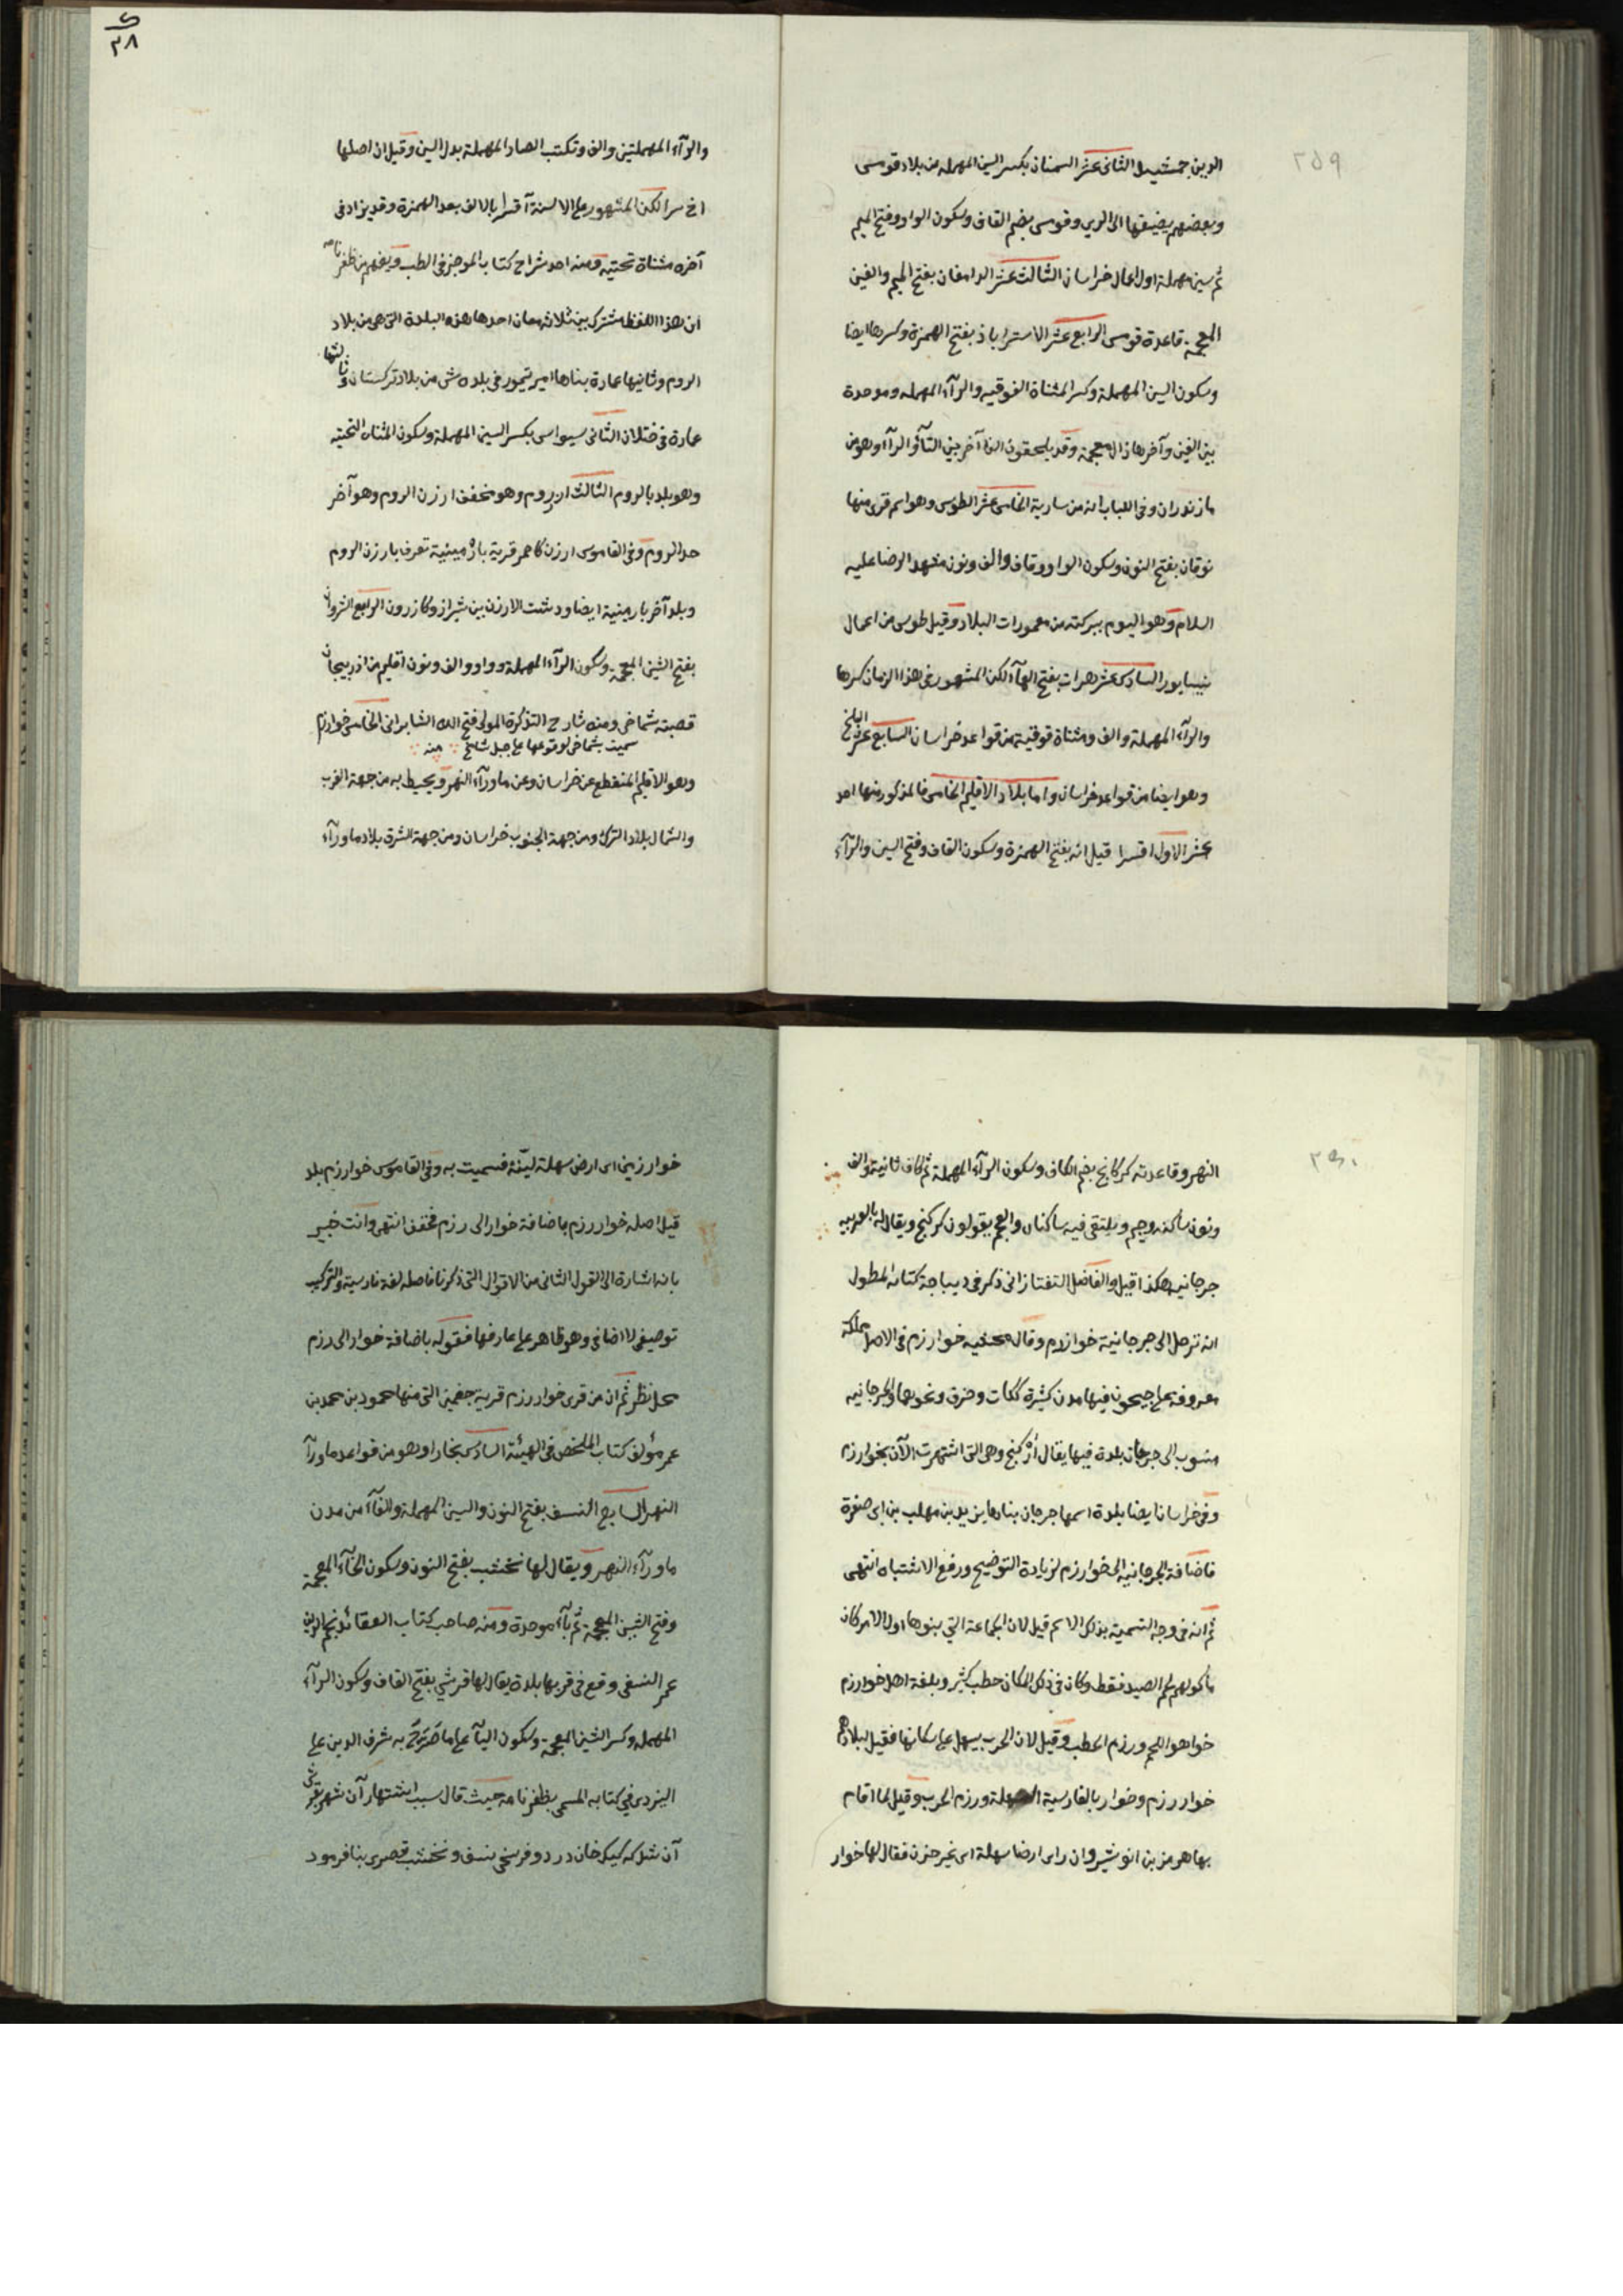 ٢٥٩
الدين جمشيد الثانى عشر السمنان بكسر السين المهملة من بلاد قومس
وبعضهم يضيفها الى الرى وقومس بضم القاف وسكون الواو وفتح الميم
ثم سين مهملة اول اعمال خراسان الثالث عشر الدامغان بفتح الميم والغين
المعجمة قاعدة قومس الرابع عشر الاستراباذ بفتح الهمزة وكسرها ايضا
وسكون السين المهملة وكسر المثناة الفوقيه والرآء المهمله وموحدة
بين الفين وآخرها ذال معجمة وقد يلحقون الفا آخر بين التآ والرآء وهو من
مازندران وفى اللباب انه من سارية الخامس عشر الطوس وهو اسم قرى منها
نوقان بفتح النون وسكون الواو وقاف والف ونون مشهد الرضا عليه
السلام وهو اليوم ببركته من معمورات البلاد وقيل طوس من اعمال
نيسابور السادس عشر هرات بفتح الهآء لكن المشهور فى هذا الزمان كسرها
والرآء المهملة والف ومثناة فوقية من قواعد خراسان السابع عشر البلخ
وهو ايضا من قواعد خراسان واما بلاد الاقليم الخامس فالمذكور منها احد
عشر الاول اقسرا قيل انه بفتح الهمزة وسكون القاف وفتح السين والرآء
٢٨
والرآء المهملتين والف وتكتب الصاد المهملة بدل السين وقيل ان اصلها
اخ سرا لكن المشهور على الالسنة آقسرا بالالف بعد الهمزة وقد يزاد فى
آخره مثناة تحتيه ومنه احد شراح كتاب الموجز فى الطب ويفهم من ظفرنامه
ان هذا اللفظ مشترك بين ثلاثة معان احدها هذه البلدة التى هى من بلاد
الروم وثانيها عمارة بناها امير تيمور فى بلده ش من بلاد تركستان وثالثها
عمارة فى ختلان الثانى سيواس بكسر السين المهملة وسكون المثناه التحتيه
وهو بلد بالروم الثالث ارزروم وهو مخفف ارزن الروم وهو آخر
حد الروم وفى القاموس ارزن كاحمر قرية بارمينية تعرف بارزن الروم
وبلد آخر بارمنية ايضا ودشت الارزن بين شيراز وكازرون الرابع الشروان
بفتح الشين المعجمة وسكون الرآء المهملة وواو والف ونون اقليم من اذربيجان
قصبته شماخى ومنه شارح التذكرة المولى فتح الله الشابرانى الخامس خوارزم
سميت بشماخى لوقوعها على جبل شامخ منه
وهو الاقليم المنقطع عن خراسان وعن ماورآء النهر ويحيط به من جهة الغرب
والشمال بلاد الترك ومن جهة الجنوب خراسان ومن جهة الشرق بلاد ماورآء
النهر وقاعدته كركانج بضم الكاف وسكون الرآء المهملة ثم كاف ثانية والف
ونون ساكنه وجيم ويلتقى فيه ساكنان والعجم يقولون كركنج ويقال له بالعربيه
جرجانيه هكذا قيل والفاضل التفتازانى ذكر فى ديباجة كتابه المطول
انه ترحل الى جرجانية خوارزم وقال محشيه خوارزم فى الاصل مملكة
معروفة على جيحون فيها مدن كثيرة ككات وخرق ونحوها والجرجانيه
منسوب الى جرجان بلدة فيها يقال اركنج وهى التى اشتهرت الآن بخوارزم
وفى خراسان ايضا بلدة اسمها جرجان بناها يزيد بن مهلب بن ابى صفرة
فاضافة الجرجانيه الى خوارزم لزيادة التوضيح ورفع الاشتباه انتهى
ثم انه فى وجه التسمية بذلك الاسم قيل لان الجماعة التى بنوها اول الامر كان
مأكولهم لحم الصيد فقط وكان فى ذلك المكان حطب كثير وبلغة اهل خوارزم
خوا هو اللحم ورزم الحطب وقيل لان الحرب يسهل على سكانها فقيل لبلادهم
خواررزم وخوار بالفارسية السهلة ورزم الحرب وقيل لما اقام
بها هرمز بن انوشيروان راى ارضا سهلة اى غير حزن فقال لها خوار
خوار زمين اى ارض سهلة لينة فسميت به وفى القاموس خوارزم بلد
قيل اصله خواررزم باضافة خوار الى رزم فخفف انتهى وانت خبير
بانه اشارة الى القول الثانى من الاقوال التى ذكرنا فاصله لغة فارسية والتركيب
توصيفى لا اضافى وهو ظاهر على عارفها فقوله باضافة خوار الى رزم
محل نظر ثم ان من قرى خوارزم قرية جغمين التى منها محمود بن محمد بن
عمر مؤلف كتاب الملخص فى الهيئة السادس بخارا وهو من قواعد ماورآ
النهر السابع النسف بفتح النون والسين المهملة والفآء من مدن
ماورآء النهر ويقال لها نخشب بفتح النون وسكون الخآء المعجمة
وفتح الشين المعجمة ثم بآء موحدة ومنه صاحب كتاب العقائد نجم الدين
عمر النسفى وقع فى قربها بلدة يقال لها قرشى بفتح القاف وسكون الرآء
المهمله وكسر الشين المعجمة وسكون اليآء على ما صرح به شرف الدين على
اليزدى فى كتابه المسمى بظفرنامه حيث قال سبب اشتهار آن شهر بقرشى
آن شد كه كبك خان در دو فرسخى نسف ونخشب قصرى بنا فرمود